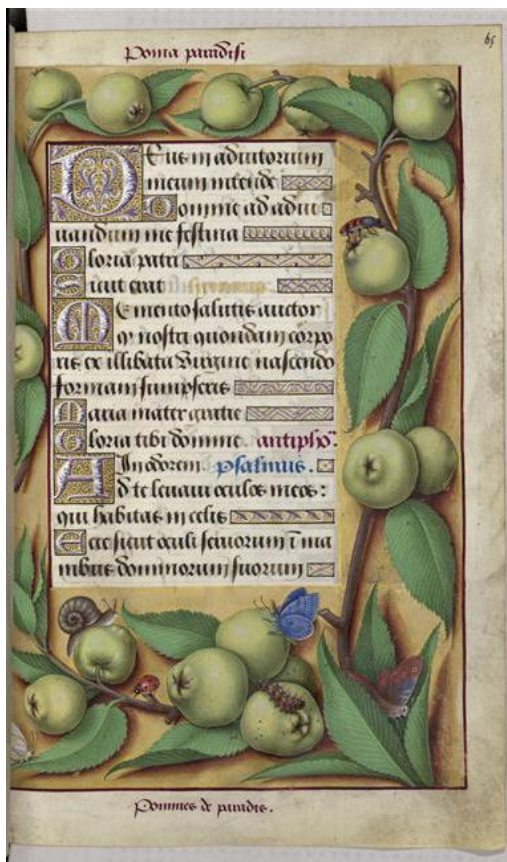 Poma paradisi
65
Deus in adiutorium
meum intende
Domine ad adiu
uandum me festina
Gloria patri
Sicut erat
Memento salutis auctor
q nostri quondam corpo
ris ex illibata Virgine nascendo
formam sumpseris
Maria mater gratie
Gloria tibi domine. antipho.
In odorem. psalmus.
Ad te leuaui oculos meos:
qui habitas in celis
Ecce sicut oculi seruorum i ma
nibus dominorum suorum
Pommes de paradis.